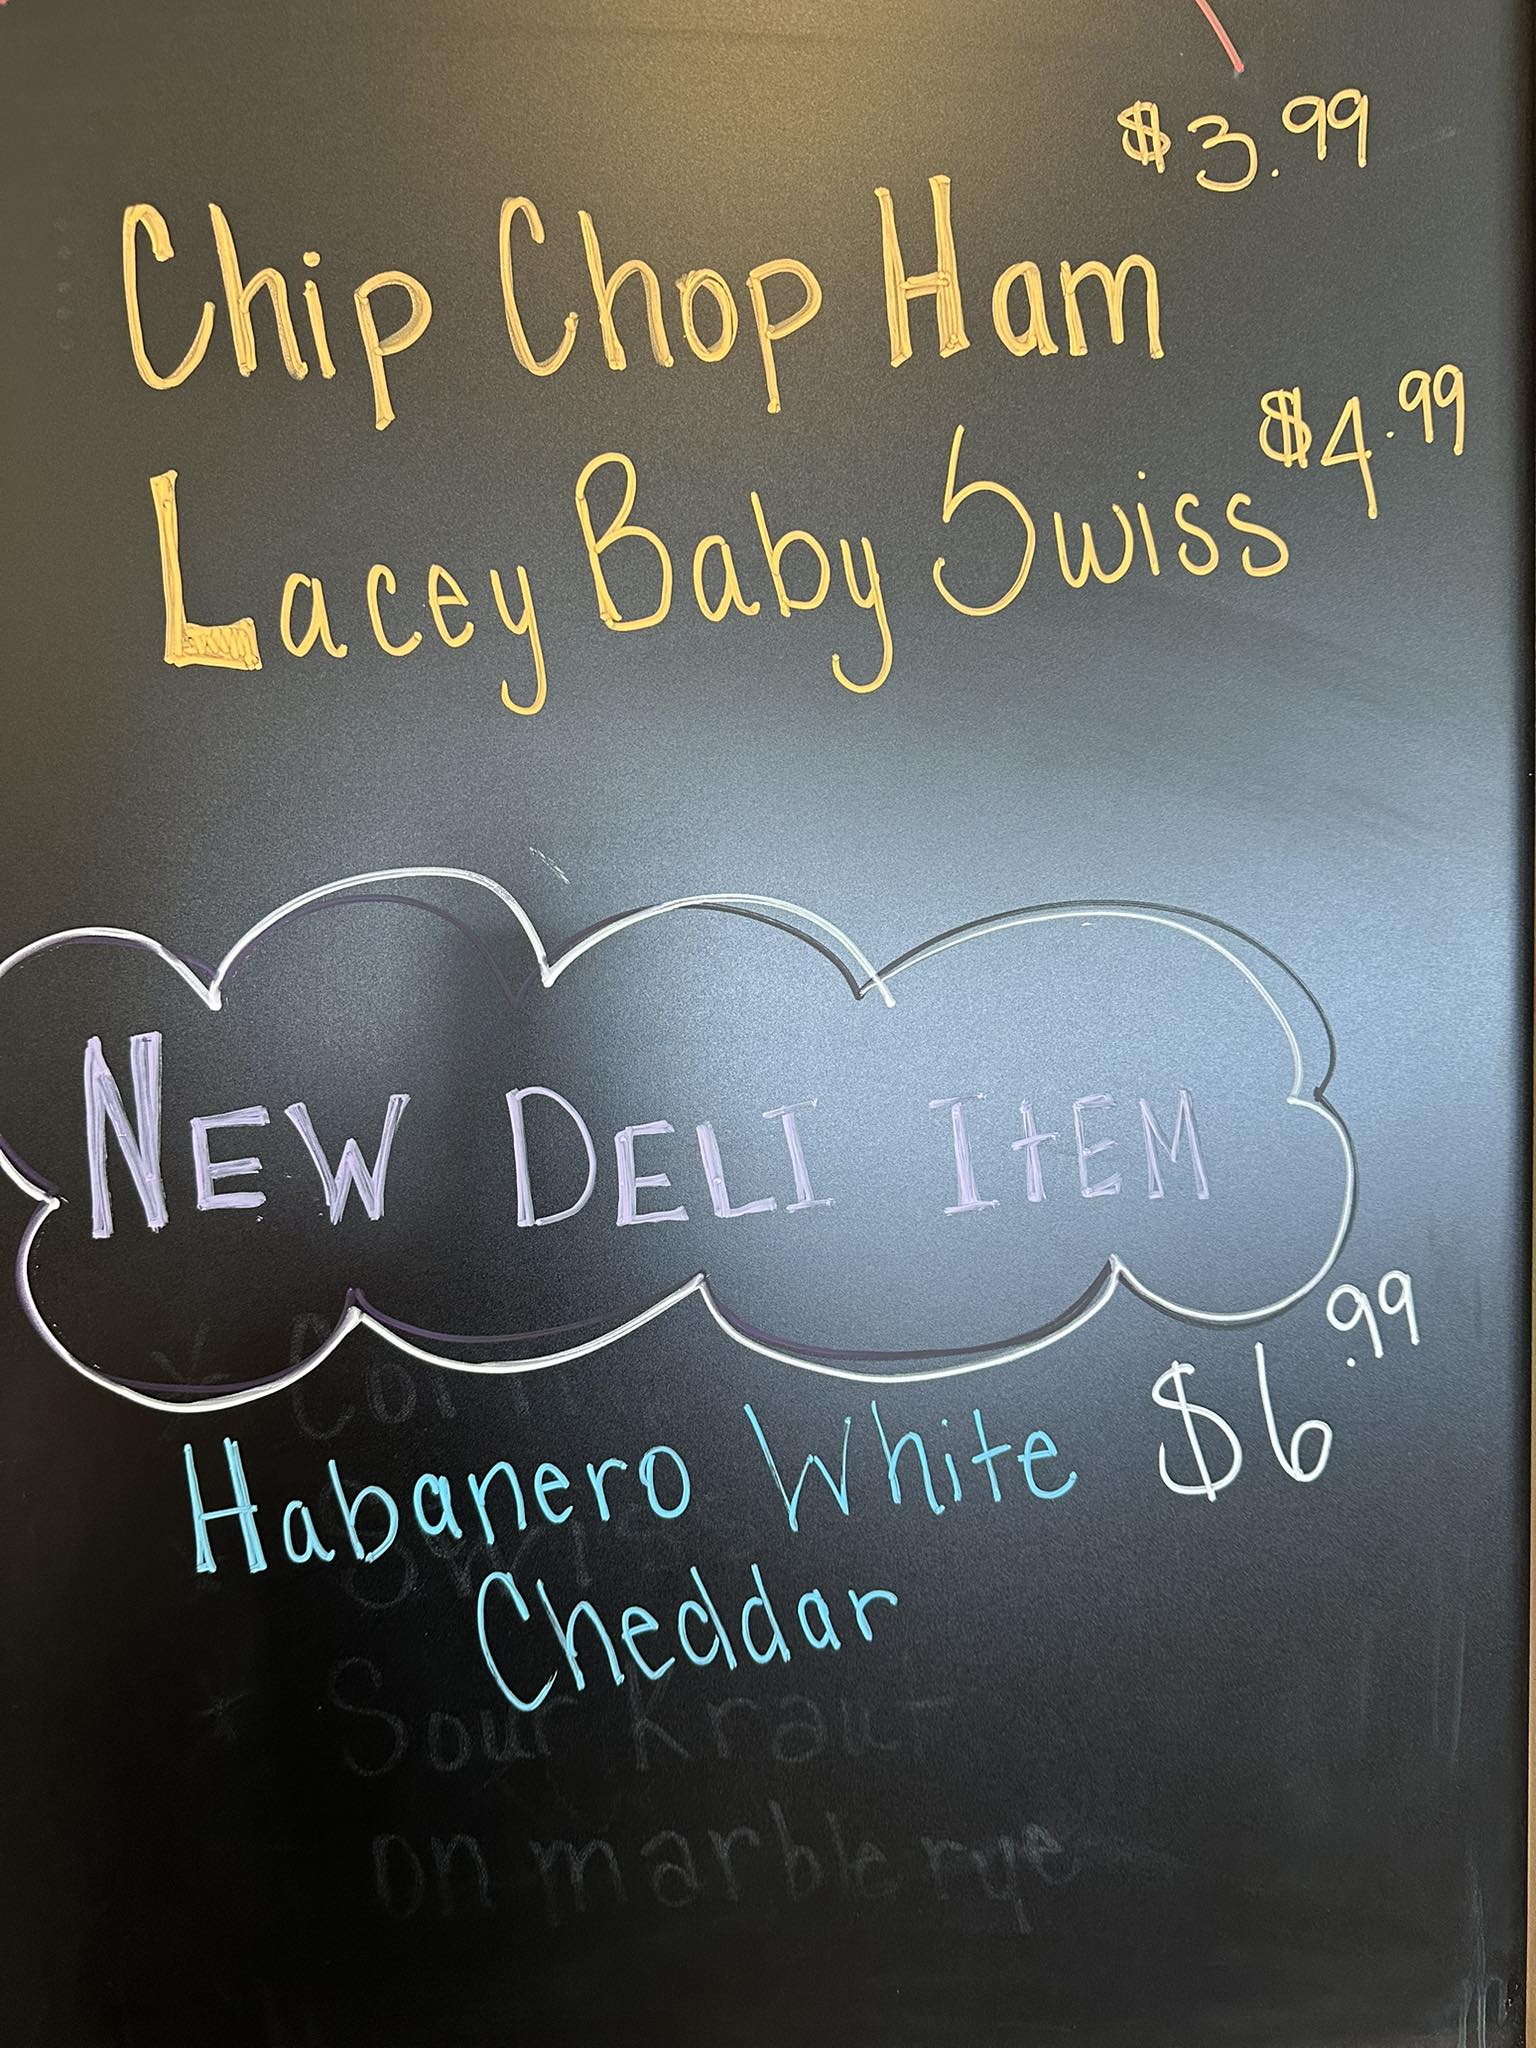 $3.99
Chip Chop Ham
$4.99
Lacey Baby Swiss
NEW DELI ItEM
$6.99
Habanero White
Cheddar
Sour Kraut
on marble rye